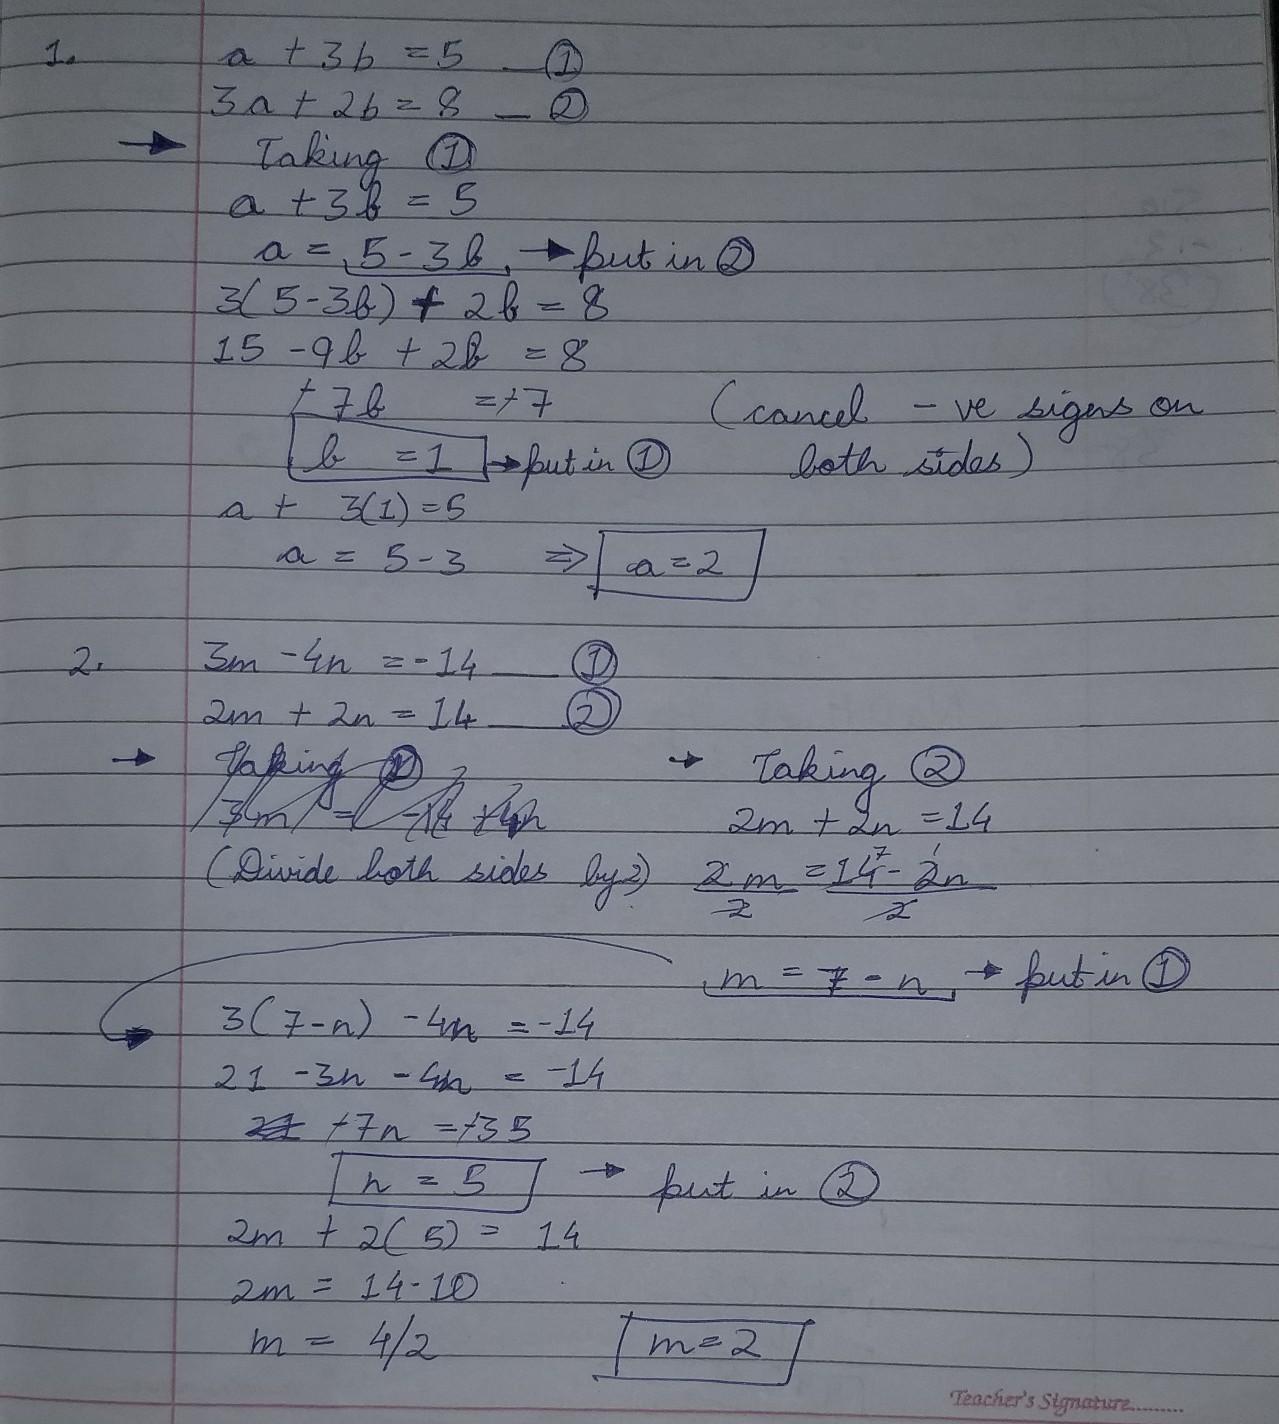 1. a + 3b = 5 — ①
3a + 2b = 8 — ②
→ Taking ①
a + 3b = 5
a = 5 - 3b → put in ②
3(5-3b) + 2b = 8
15 - 9b + 2b = 8
+7b = +7 (cancel -ve signs on
b = 1 → put in ① both sides)
a + 3(1) = 5
a = 5 - 3 ⇒ a = 2
2. 3m - 4n = -14 — ①
2m + 2n = 14 — ②
→ Taking ① → Taking ②
3m = -14 + 4n 2m + 2n = 14
(Divide both sides by 2) 2m/2 = 14 7 - 2n/2
m = 7 - n → put in ①
3(7-n) - 4n = -14
21 - 3n - 4n = -14
21 +7n = +35
n = 5 → put in ②
2m + 2(5) = 14
2m = 14 - 10
m = 4/2 m = 2
Teacher's Signature.........